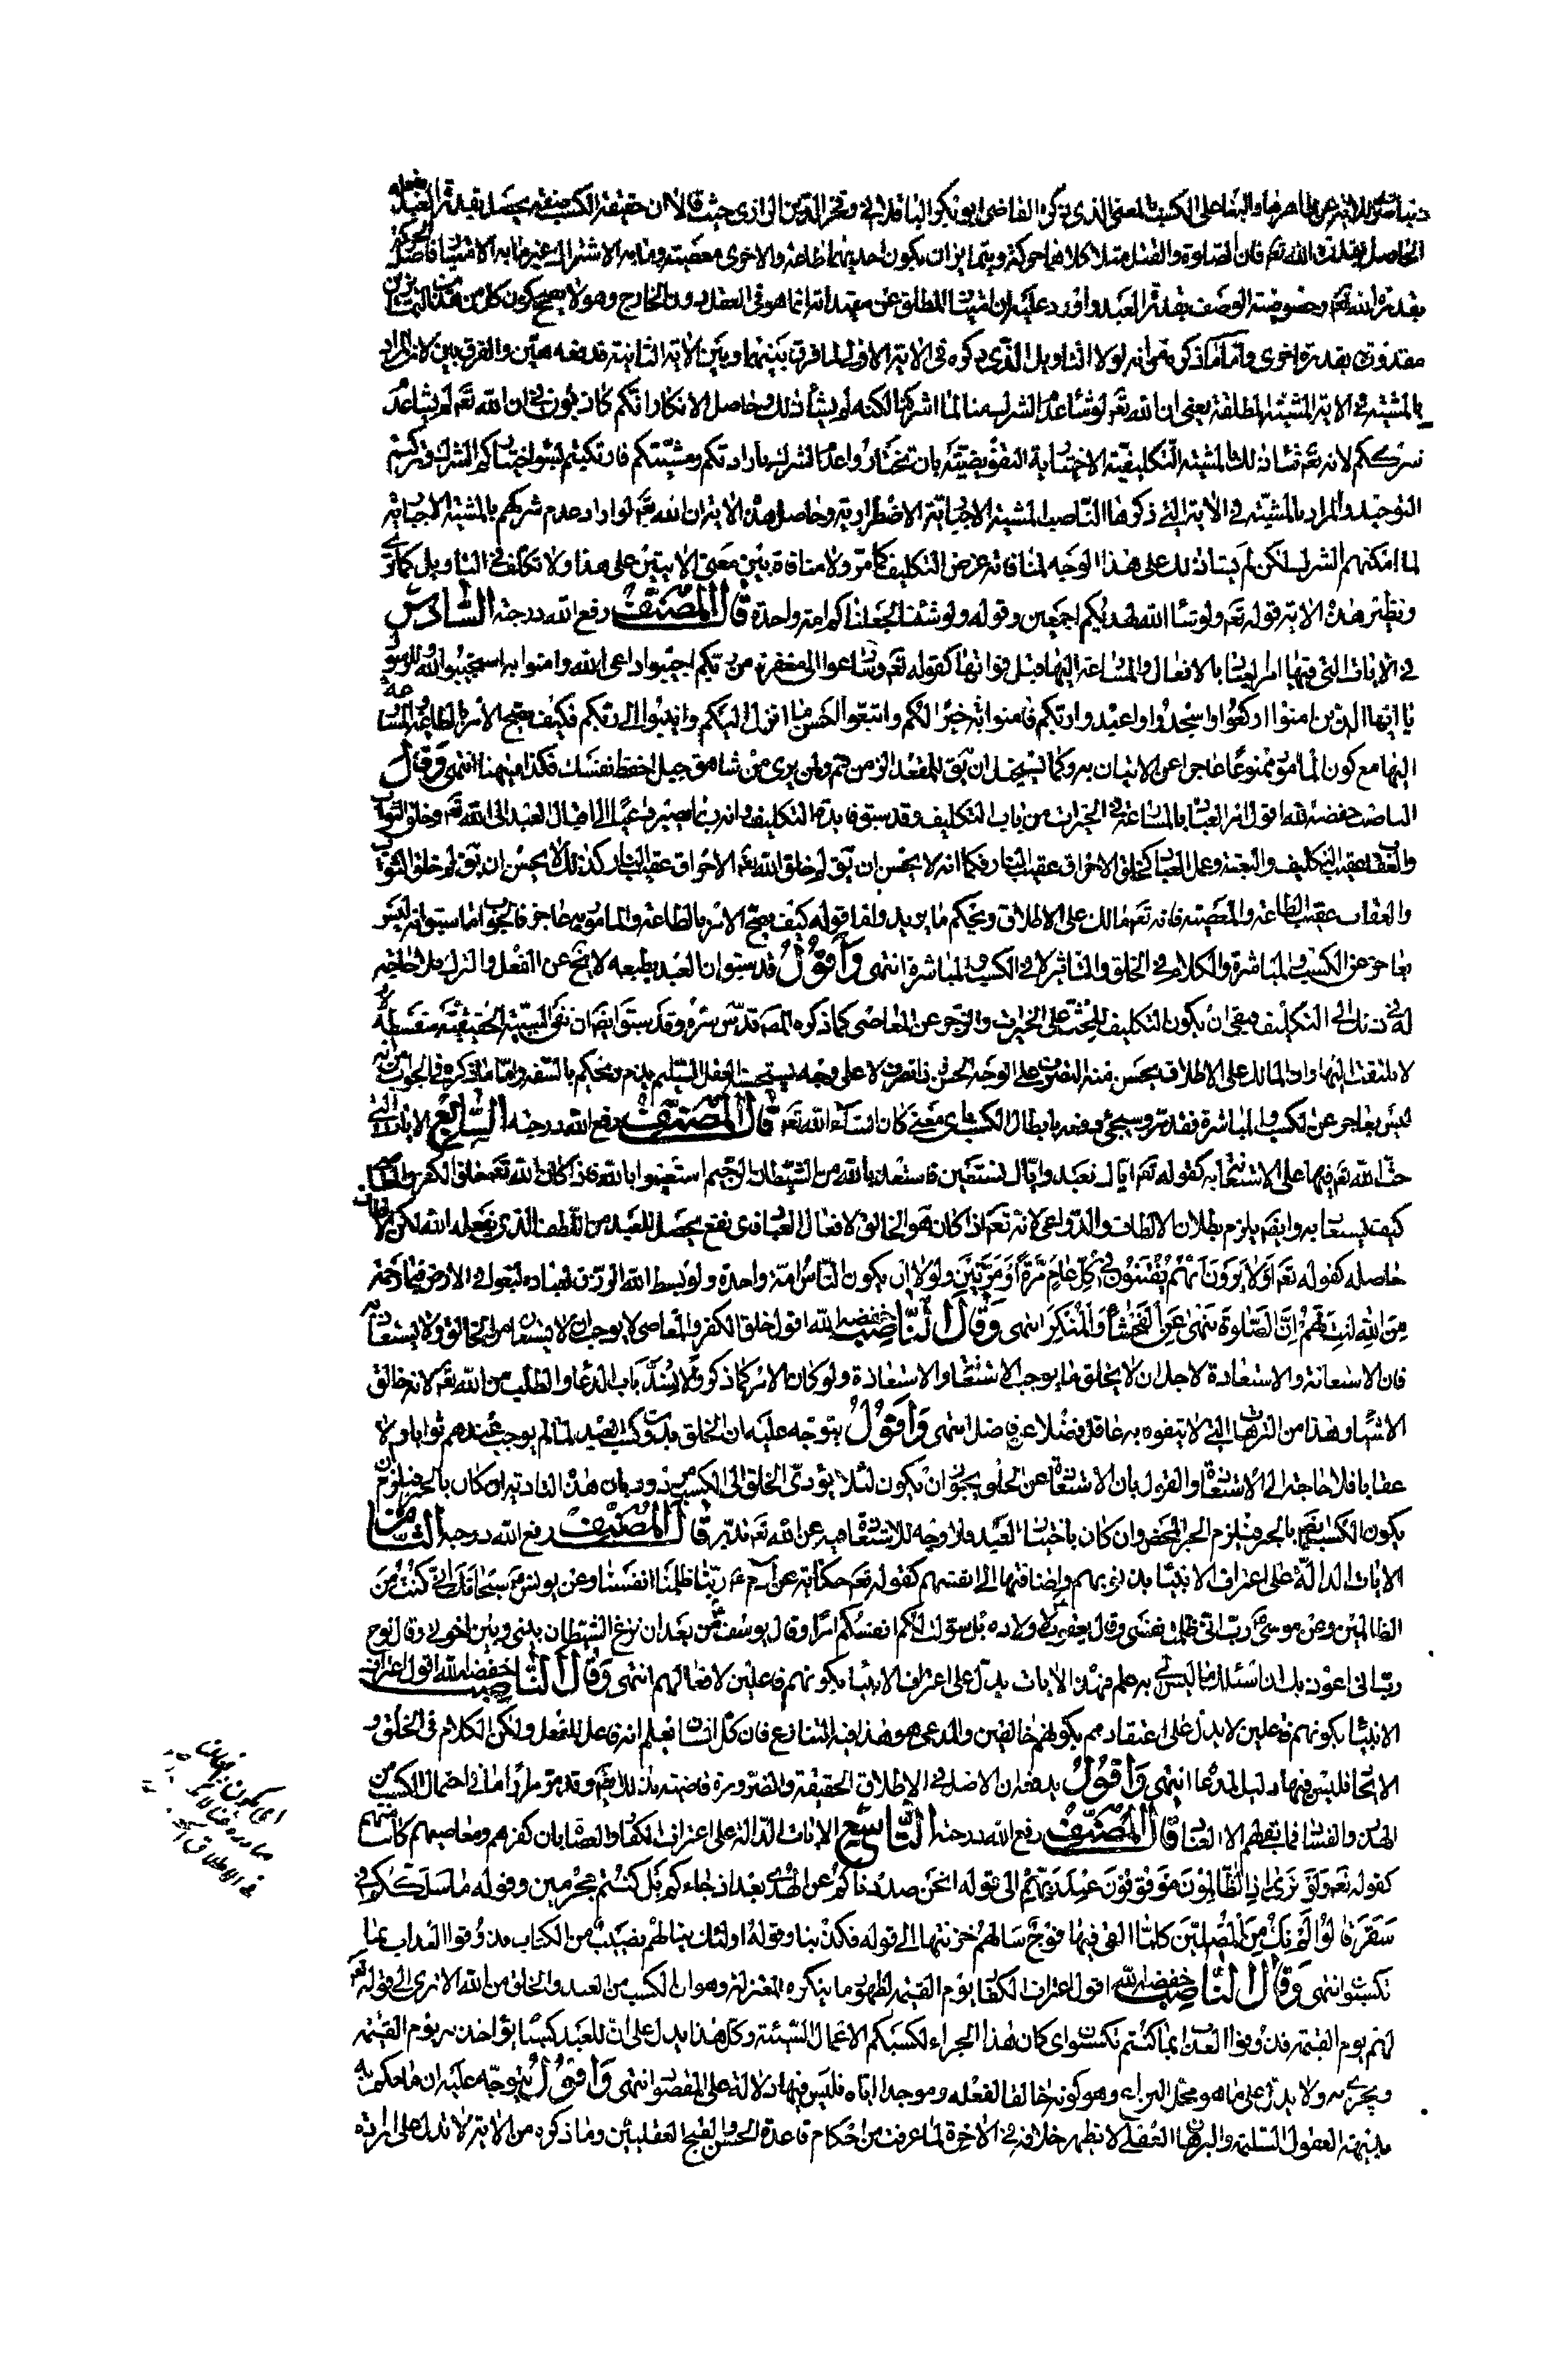 الحاصل بقدرة الله تع فان الصلوة والقتل مثلا كلاهما حركة ويتمايزان بكون احديهما طاعة والاخرى معصية وما به الاشتراك غير ما به الامتياز فاصل الحركة
بقدرة الله تع وخصوصية الوصف بقدرة العبد واورد عليه ان امتياز المطلق عن مقيداته انما هو في العقل دون الخارج وهو لا يصحح كون كل من هذين
مقدورين بقدرة اخرى واما ما ذكره من انه لولا التاويل الذي ذكره في الاية الاولى لما فرق بينها وبين الاية الثانية قد فعه هين والفرق بين لان المراد
بالمشية في الاية المشية المطلقة يعني ان الله تع لو شاء عدم الشرك منا لما اشركنا لكنه لم يشأ ذلك وحاصل الانكار انكم كاذبون في ان الله تع لم يشأ عدم
شرككم لانه تع شاء ذلك المشية التكليفية الاختيارية التفويضية بان تختاروا عدم الشرك بارادتكم ومشيتكم فارتكبتم بسوء اختياركم الشرك وتركتم
التوحيد والمراد بالمشية في الاية التي ذكرها الناصب المشية الاجبارية الاضطرارية وحاصل هذه الاية ان الله تع لو اراد عدم شركهم بالمشية الاجبارية
لما امكنهم الشرك لكن لم يشأ ذلك على هذا الوجه لمنافاته غرض التكليف كما مر ولا منافاة بين معنى الايتين على هذا ولا تكلف في التاويل كما ترى
ونظير هذه الاية قوله تع ولو شاء الله لهديكم اجمعين وقوله ولو شئنا لجعلناكم امة واحدة قال المصنف رفع الله درجته السادس
في الايات التي فيها امر العباد بالافعال والمسارعة اليها قبل فواتها كقوله تع وسارعوا الى مغفرة من ربكم اجيبوا داعي الله وامنوا به استجيبوا لله وللرسول
يا ايها الذين امنوا اركعوا واسجدوا واعبدوا ربكم فامنوا به خيرا لكم واتبعوا احسن ما انزل اليكم وانيبوا الى ربكم فكيف يصح الامر بالطاعة والمسارعة
اليها مع كون المامور ممنوعا عاجزا عن الاتيان به وكما يستحيل ان يق للمقعد الزمن قم ولمن يرمى من شاهق جبل احفظ نفسك فكذا هيهنا انتهى وقال
الناصب خفضه الله اقول امر العباد بالمسارعة في الخيرات من باب التكليف وقد سبق فايدة التكليف وانه ربما يصير داعيا الى اقبال العبد الى الله تع وخلق الثواب
والعقاب عقيب التكليف والبعثة وعمل العباد كخلق الاحراق عقيب النار فكما انه لا يحسن ان يق لم خلق الله تع الاحراق عقيب النار كذلك لا يحسن ان يق لم خلق الثواب
والعقاب عقيب الطاعة والمعصية فانه تع مالك على الاطلاق ويحكم ما يريد واما قوله كيف يصح الامر بالطاعة والمامور به عاجز فالجواب ما سبق انه ليس
بعاجز عن الكسب والمباشرة والكلام في الخلق والتاثير لا في الكسب والمباشرة انتهى واقول قد سبق ان العبد بطبعه لا يخ عن الفعل والترك فلا حاجة
له في ذلك الى التكليف فبقي ان يكون التكليف للحث على الخيرات والزجر عن المعاصي كما ذكره المصـ قدس سره وقد سبق ايضا ان نفي السببية الحقيقية سفسطة
لا يلتفت اليها وان المالك على الاطلاق يحسن منه التصرف على الوجه الحسن فان تصرف لا على وجه يستحسنه العقل السليم يذم ويحكم بالسفه واما ما ذكره في الجواب من انه
ليس بعاجز عن الكسب والمباشرة فقد مر وسيجئ دفعه بابطال الكسب باي معنى كان انشاء الله تع قال المصنف رفع الله درجته السابع الايات التي
حث الله تع فيها على الاستعانة به كقوله تع اياك نعبد واياك نستعين فاستعذ بالله من الشيطان الرجيم استعينوا بالله فاذا كان الله تع خلق الكفر والمعاصي
كيف يستعان به وايضا يلزم بطلان الالطاف والدواعي لانه تع اذا كان هو الخالق لافعال العباد فاي نفع يحصل للعبد من اللطف الذي يفعله الله لكن الالطاف
حاصلة كقوله تع اولا يرون انهم يفتنون في كل عام مرة او مرتين ولولا ان يكون الناس امة واحدة ولو بسط الله الرزق لعباده لبغوا في الارض فبما رحمة
من الله لنت لهم ان الصلوة تنهى عن الفحشاء والمنكر انتهى وقال الناصب خفضه الله اقول خلق الكفر والمعاصي لا يوجب ان لا يستعان من الخالق ولا يستعاذ به
فان الاستعانة والاستعاذة لاجل ان لا يخلق ما يوجب الاستعانة والاستعاذة ولو كان الامر كما ذكر لانسد باب الدعاء والطلب من الله تع لانه خالق
الاشياء وهذا من الترهات التي لا يتفوه به عاقل فضلا عن فاضل انتهى واقول يتوجه عليه ان الخلق بدون كسب العبد لما لم يوجب عندهم ثوابا ولا
عقابا فلا حاجة الى الاستعاذة والقول بان الاستعاذة عن الخلق يجوز ان يكون لئلا يؤدي الخلق الى الكسب مردود بان هذه التادية ان كان بالجبر فيلزم ان
يكون الكسب ايضا بالجبر فيلزم الجبر المحض وان كان باختيار العبد فلا وجه للاستعاذة فيه عن الله تع تدبر قال المصنف رفع الله درجته الثامن
الايات الدالة على اعتراف الانبياء بذنوبهم واضافتها الى انفسهم كقوله تع حكاية عن ادم ع ربنا ظلمنا انفسنا وعن يونس ع سبحانك اني كنت من
الظالمين وعن موسى ع رب اني ظلمت نفسي وقال يعقوب لاولاده بل سولت لكم انفسكم امرا وقال يوسف ع من بعد ان نزغ الشيطان بيني وبين اخوتي وقال نوح
رب اني اعوذ بك ان اسئلك ما ليس لي به علم فهذه الايات يدل على اعتراف الانبياء بكونهم فاعلين لافعالهم انتهى وقال الناصب خفضه الله اقول اعتراف
الانبياء بكونهم فاعلين لا يدل على اعتقادهم بكونهم خالقين والمدعى هو هذا وفيه التنازع فان كل انسان يعلم انه فاعل للفعل ولكن الكلام في الخلق و
الايجاد فليس فيها دليل المدعا انتهى واقول يدفعه ان الاصل في الاطلاق الحقيقة والضرورة قاضية بذلك ايضا وقد مر مرارا ما في احتمال الكسب من
الهذر والفساد فما بقي لهم الا العناد قال المصنف رفع الله درجته التاسع الايات الدالة على اعتراف الكفار والعصاة بان كفرهم ومعاصيهم كانت منهم
كقوله تع ولو ترى اذ الظالمون موقوفون عند ربهم الى قوله انحن صددناكم عن الهدى بعد اذ جاءكم بل كنتم مجرمين وقوله ما سلككم في
سقر قالوا لم نك من المصلين كلما القي فيها فوج سالهم خزنتها الى قوله فكذبنا وقوله اولئك ينالهم نصيبهم من الكتاب فذوقوا العذاب بما
تكسبون انتهى وقال الناصب خفضه الله اقول اعتراف الكفار يوم القيمة لظهور ما ينكره المعتزلة وهو ان الكسب من العبد والخلق من الله الا ترى الى قوله تع
لهم يوم القيمة فذوقوا العذاب بما كنتم تكسبون اي كان هذا الجزاء لكسبكم الاعمال السيئة وكل هذا يدل على ان للعبد كسبا يؤاخذ به يوم القيمة
ويجزى به ولا يدل على ما هو محل النزاع وهو كونه خالقا لفعله وموجدا اياه فليس فيها دلالة على المقصود انتهى واقول يتوجه عليه ان ما حكمت به
بديهة العقول السليمة والبرهان العقلي لا يظهر خلافه في الاخرة لما عرفت من احكام قاعدة الحسن والقبح العقليين وما ذكره من الاية لا تدل على ارادة